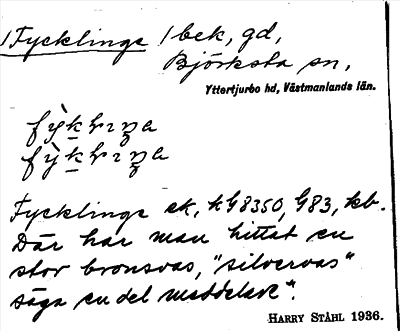 Fycklinge / bek, gd,
Björksta sn,
Yttertjurbo hd, Västmanlands län.
Fycklinge ek, kG8350, G83, kb.
Där har man hittat en
stor bronsvas, "silvervas"
säga en del meddelare".
HARRY STÅHL 1936.